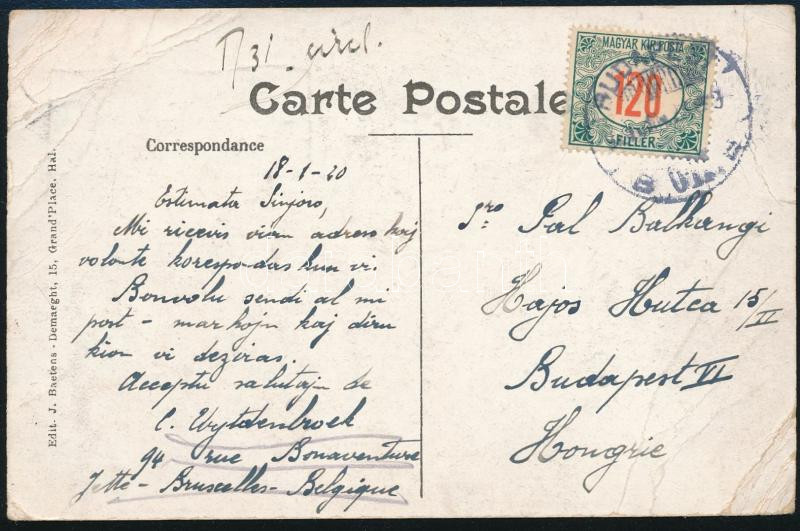 T 31
Carte Postale
Correspondance
MAGYAR KIR. POSTA
120
FILLÉR
BUDAPEST
18-1-20
Estimata Sinjoro,
Mi ricevis vian adreso kaj
volonte korespodas kun vi.
Bonvolu sendi al mi
post-markojn kaj diru
kion vi deziras.
Acceptu salutajn de
C. Uytdenbroek
94 rue Bonaventure
Jette-Bruxelles-Belgique
Sro Pal Balkangi
Hajos Hutca 15/II
Budapest VI
Hongrie
Edit. J. Baetens-Demaeght, 15, Grand'Place, Hal.